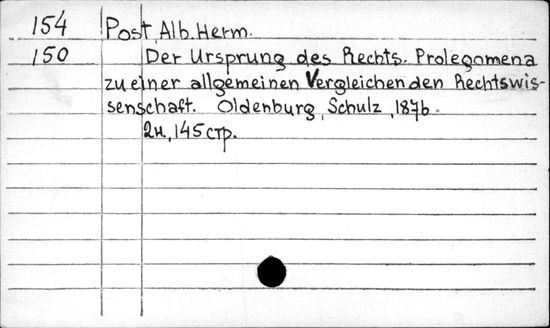 154 Post Alb. Herm.
150 Der Ursprung des Rechts. Prolegomena
zu einer allgemeinen Vergleichenden Rechtswis-
senschaft. Oldenburg, Schulz, 1876.
2н., 145 стр.